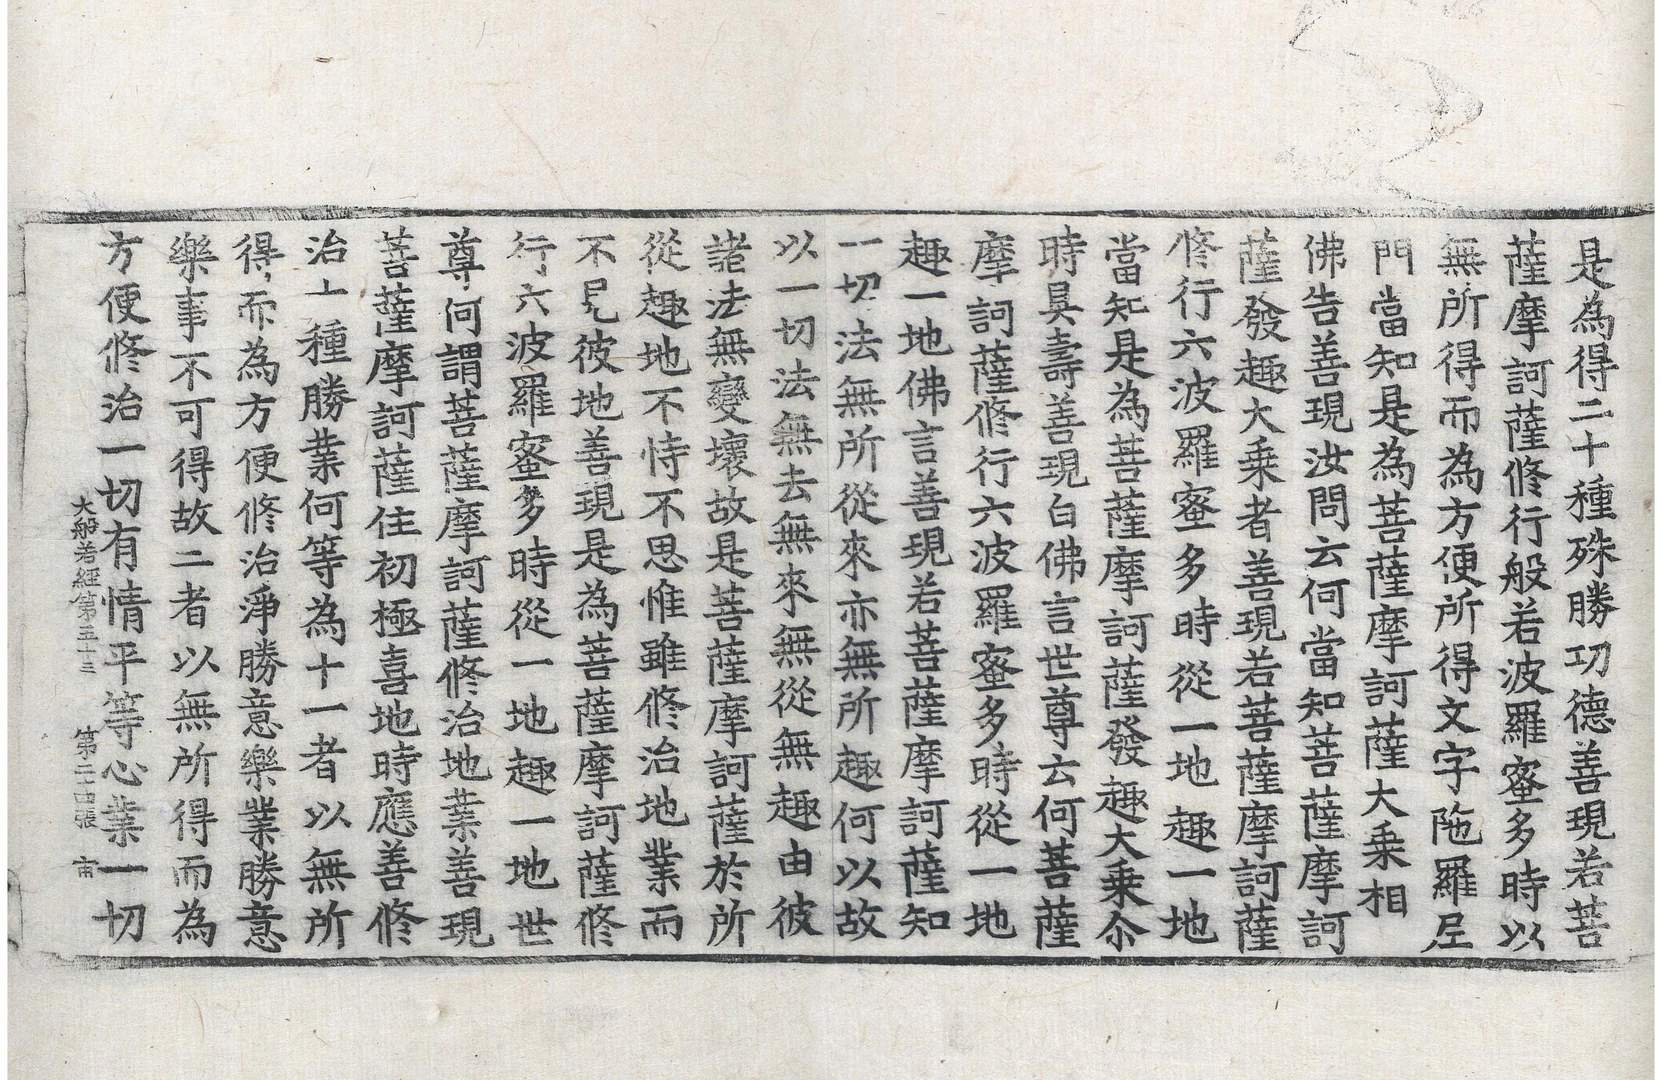 是為得二十種殊勝功德善現若菩
薩摩訶薩修行般若波羅蜜多時以
無所得而為方便所得文字陁羅尼
門當知是為菩薩摩訶薩大乘相
佛告善現汝問云何當知菩薩摩訶
薩發趣大乘者善現若菩薩摩訶薩
修行六波羅蜜多時從一地趣一地
當知是為菩薩摩訶薩發趣大乘尒
時具壽善現白佛言世尊云何菩薩
摩訶薩修行六波羅蜜多時從一地
趣一地佛言善現若菩薩摩訶薩知
一切法無所從來亦無所趣何以故
以一切法無去無來無從無趣由彼
諸法無變壞故是菩薩摩訶薩於所
從趣地不恃不思惟雖修治地業而
不見彼地善現是為菩薩摩訶薩修
行六波羅蜜多時從一地趣一地世
尊何謂菩薩摩訶薩修治地業善現
菩薩摩訶薩住初極喜地時應善修
治十種勝業何等為十一者以無所
得而為方便修治淨勝意樂業勝意
樂事不可得故二者以無所得而為
方便修治一切有情平等心業一切
大般若經第五十三 第二十四張